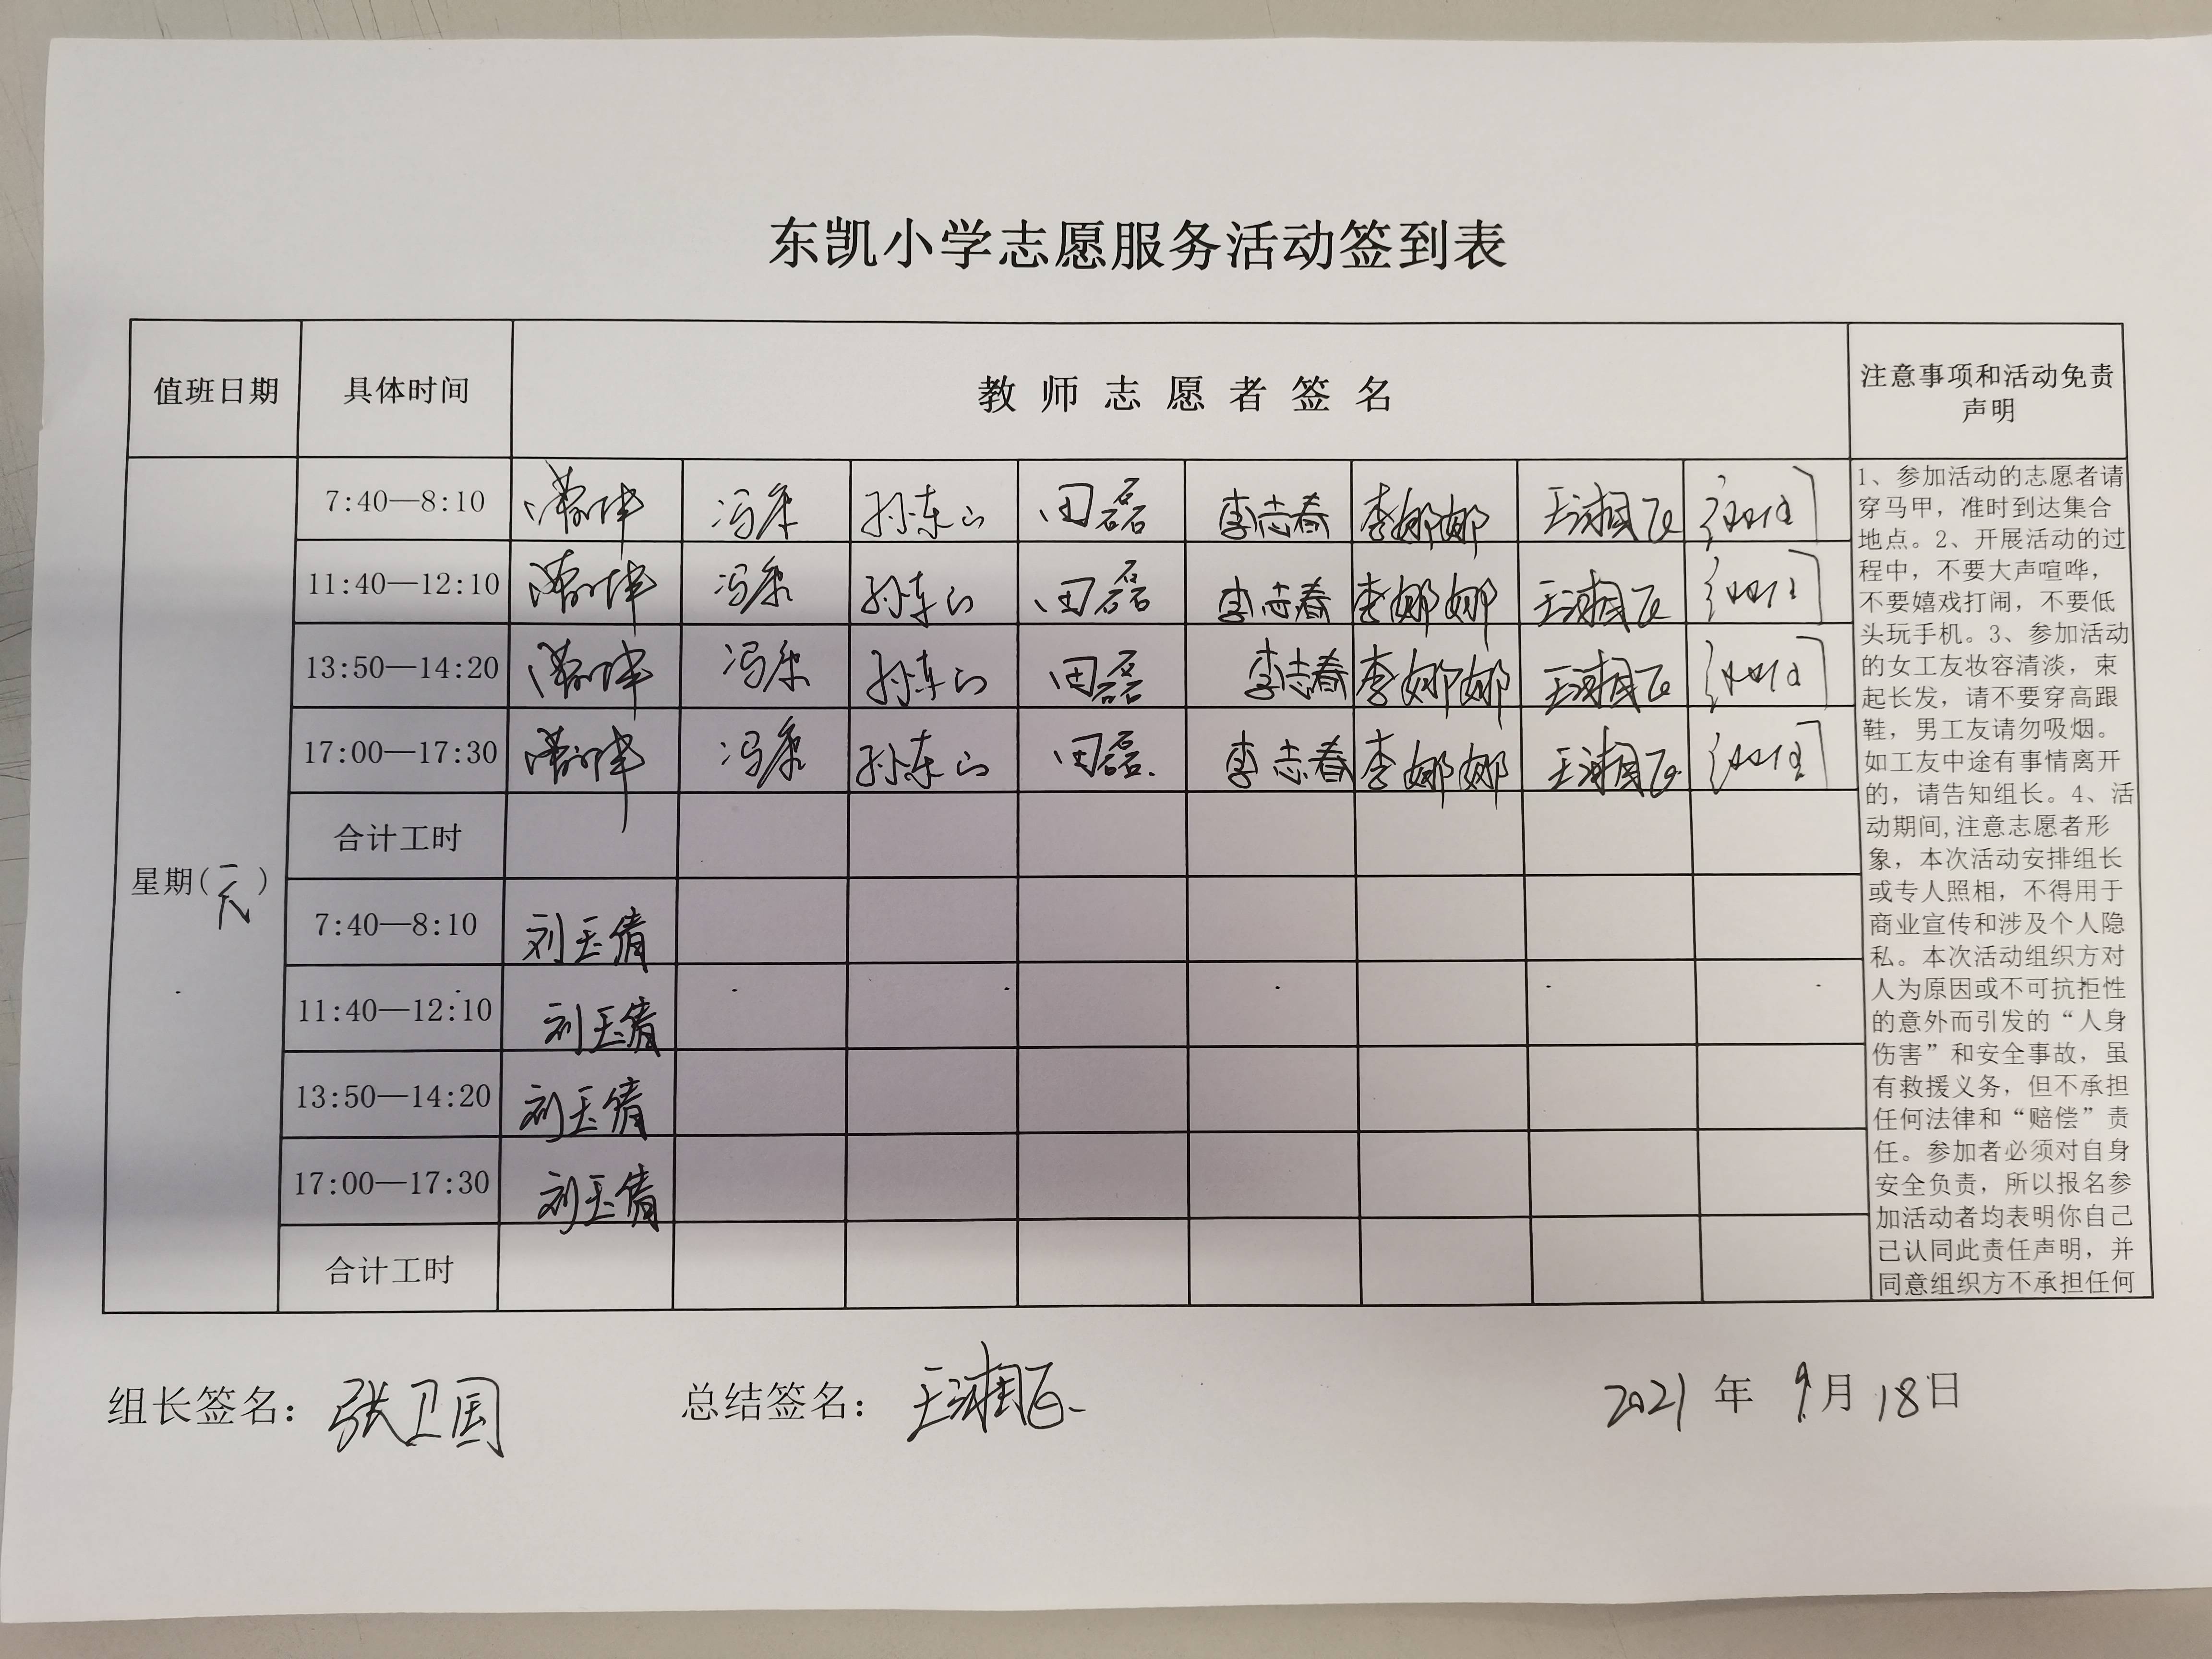 东凯小学志愿服务活动签到表
值班日期 具体时间 教师志愿者签名 注意事项和活动免责声明
星期( )
7:40—8:10 冯 孙东山 田磊 李志春 李娜娜 王湘飞
11:40—12:10 冯 孙东山 田磊 李志春 李娜娜 王湘飞
13:50—14:20 冯 孙东山 田磊 李志春 李娜娜 王湘飞
17:00—17:30 冯 孙东山 田磊 李志春 李娜娜 王湘飞
合计工时
7:40—8:10 刘玉倩
11:40—12:10 刘玉倩
13:50—14:20 刘玉倩
17:00—17:30 刘玉倩
合计工时
1、参加活动的志愿者请
穿马甲，准时到达集合
地点。2、开展活动的过
程中，不要大声喧哗，
不要嬉戏打闹，不要低
头玩手机。3、参加活动
的女工友妆容清淡，束
起长发，请不要穿高跟
鞋，男工友请勿吸烟。
如工友中途有事情离开
的，请告知组长。4、活
动期间,注意志愿者形
象，本次活动安排组长
或专人照相，不得用于
商业宣传和涉及个人隐
私。本次活动组织方对
人为原因或不可抗拒性
的意外而引发的“人身
伤害”和安全事故，虽
有救援义务，但不承担
任何法律和“赔偿”责
任。参加者必须对自身
安全负责，所以报名参
加活动者均表明你自己
己认同此责任声明，并
同意组织方不承担任何
组长签名：张卫国 总结签名：王湘飞 2021年9月18日